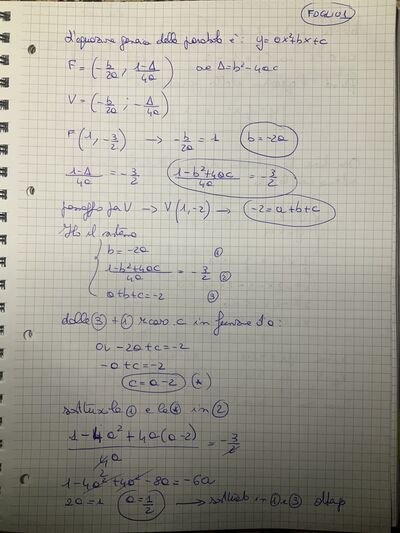 FOGLIO 1
L'equazione generica della parabola è: y=ax²+bx+c
F = (-b/2a ; 1-Δ/4a) ove Δ=b²-4ac
V = (-b/2a ; -Δ/4a)
F(1, -3/2) → -b/2a = 1 b=-2a
1-Δ/4a = -3/2 1-b²+4ac/4a = -3/2
passaggio per V → V(1,-2) → -2=a+b+c
Ho il sistema
b=-2a ①
1-b²+4ac/4a = -3/2 ②
a+b+c=-2 ③
dalla ③ + ① ricavo c in funzione di a:
a-2a+c=-2
-a+c=-2
c=a-2 (*)
sostituisco ① e la (*) in ②
1-4a²+4a(a-2)/4a = -3/2
2
1-4a²+4a²-8a=-6a
2a=1 a=1/2 → in ① e ③